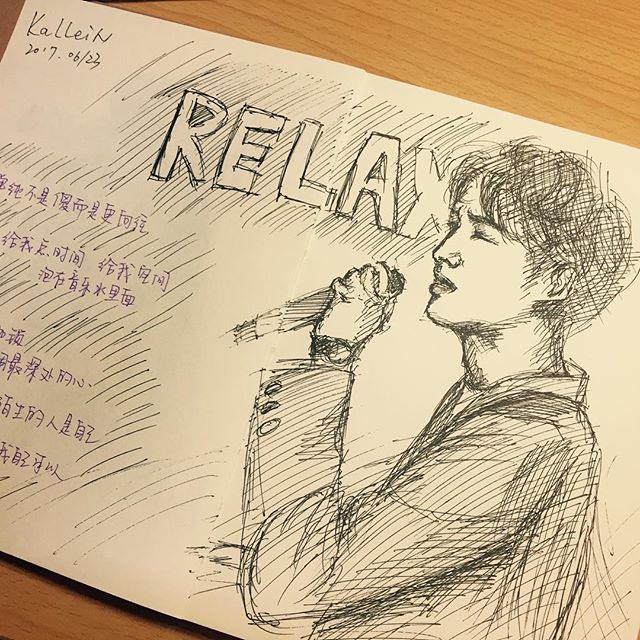 KaLLeiN
2017.06/23
RELAX
单纯不是傻而是更向往
给我点时间 给我空间
泡在音乐水里面
锁
最深处的心
陌生的人是自己
我自己可以